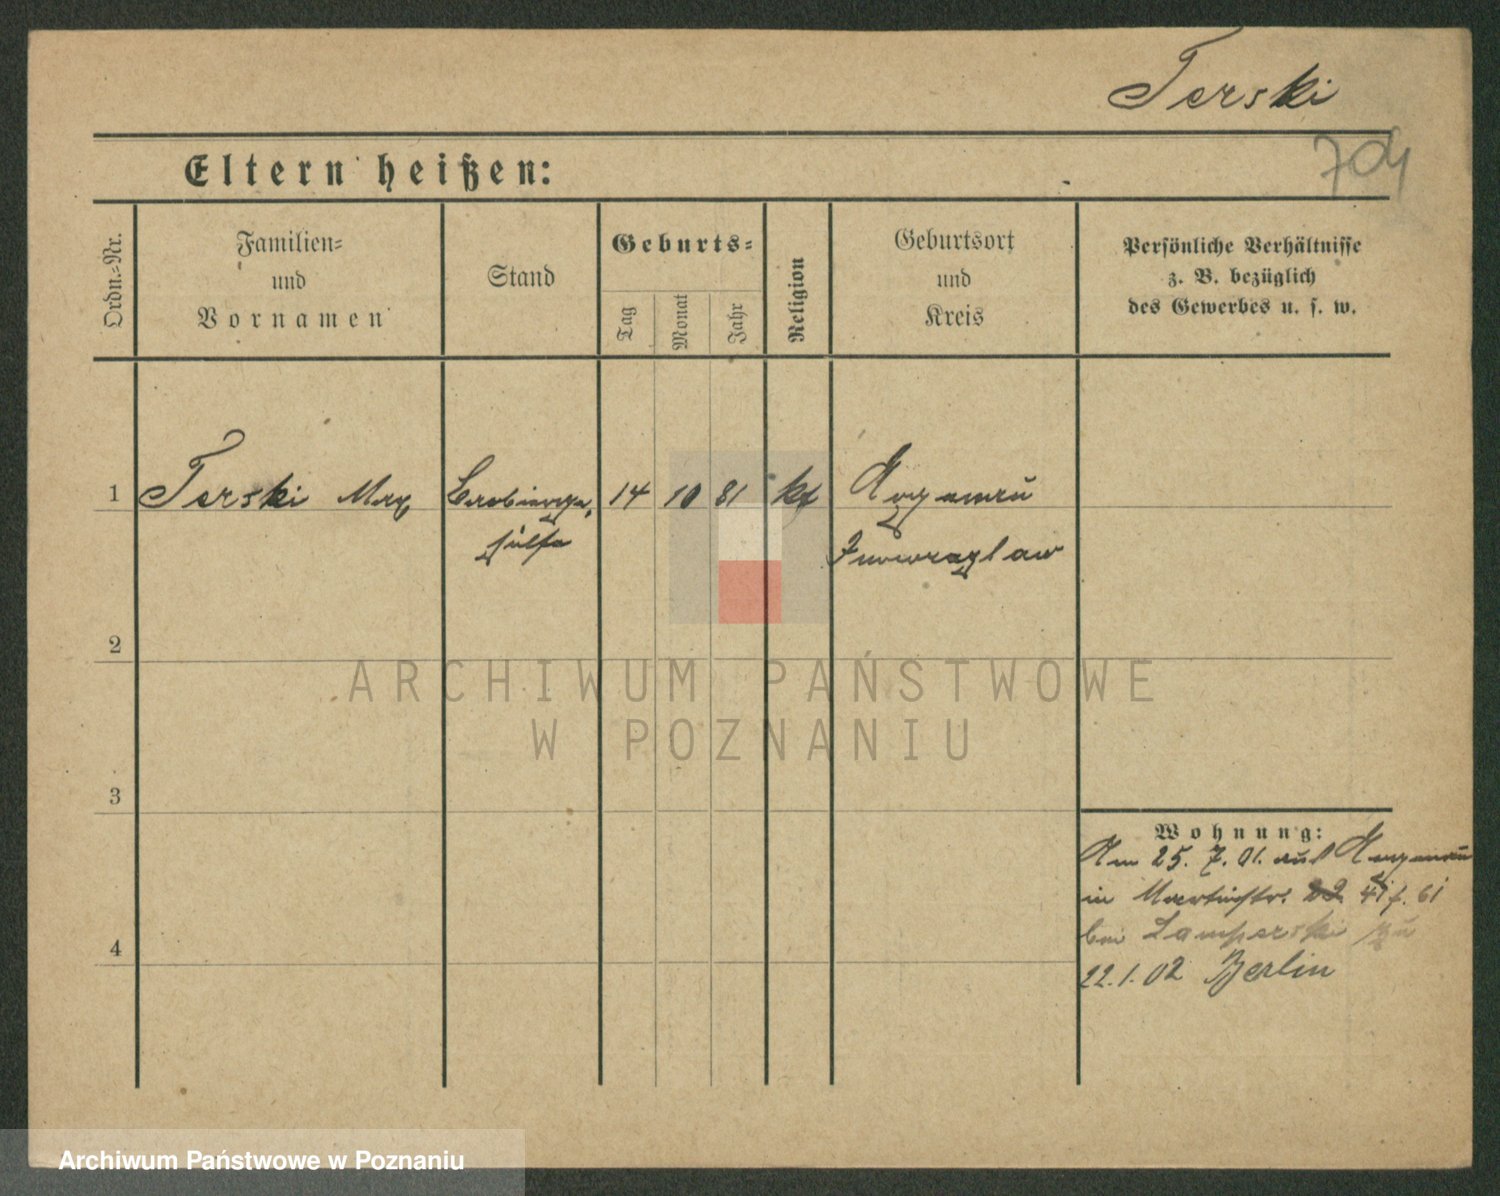 Terski
704
Eltern heißen:
Ordn.-Nr.
Familien-
und
Vornamen
Stand
Geburts-
Tag
Monat
Jahr
Religion
Geburtsort
und
Kreis
Persönliche Verhältnisse
z. B. bezüglich
des Gewerbes u. s. w.
1
Terski Max
Barbierge-
hülfe
14 10 81
kt
Argenau
Inowrazlaw
2
3
4
Wohnung:
Am 25. 7. 01. aus Argenau
in Martinstr. 61
bei Lamperski
22.1.02 Berlin
ARCHIWUM PAŃSTWOWE
W POZNANIU
Archiwum Państwowe w Poznaniu